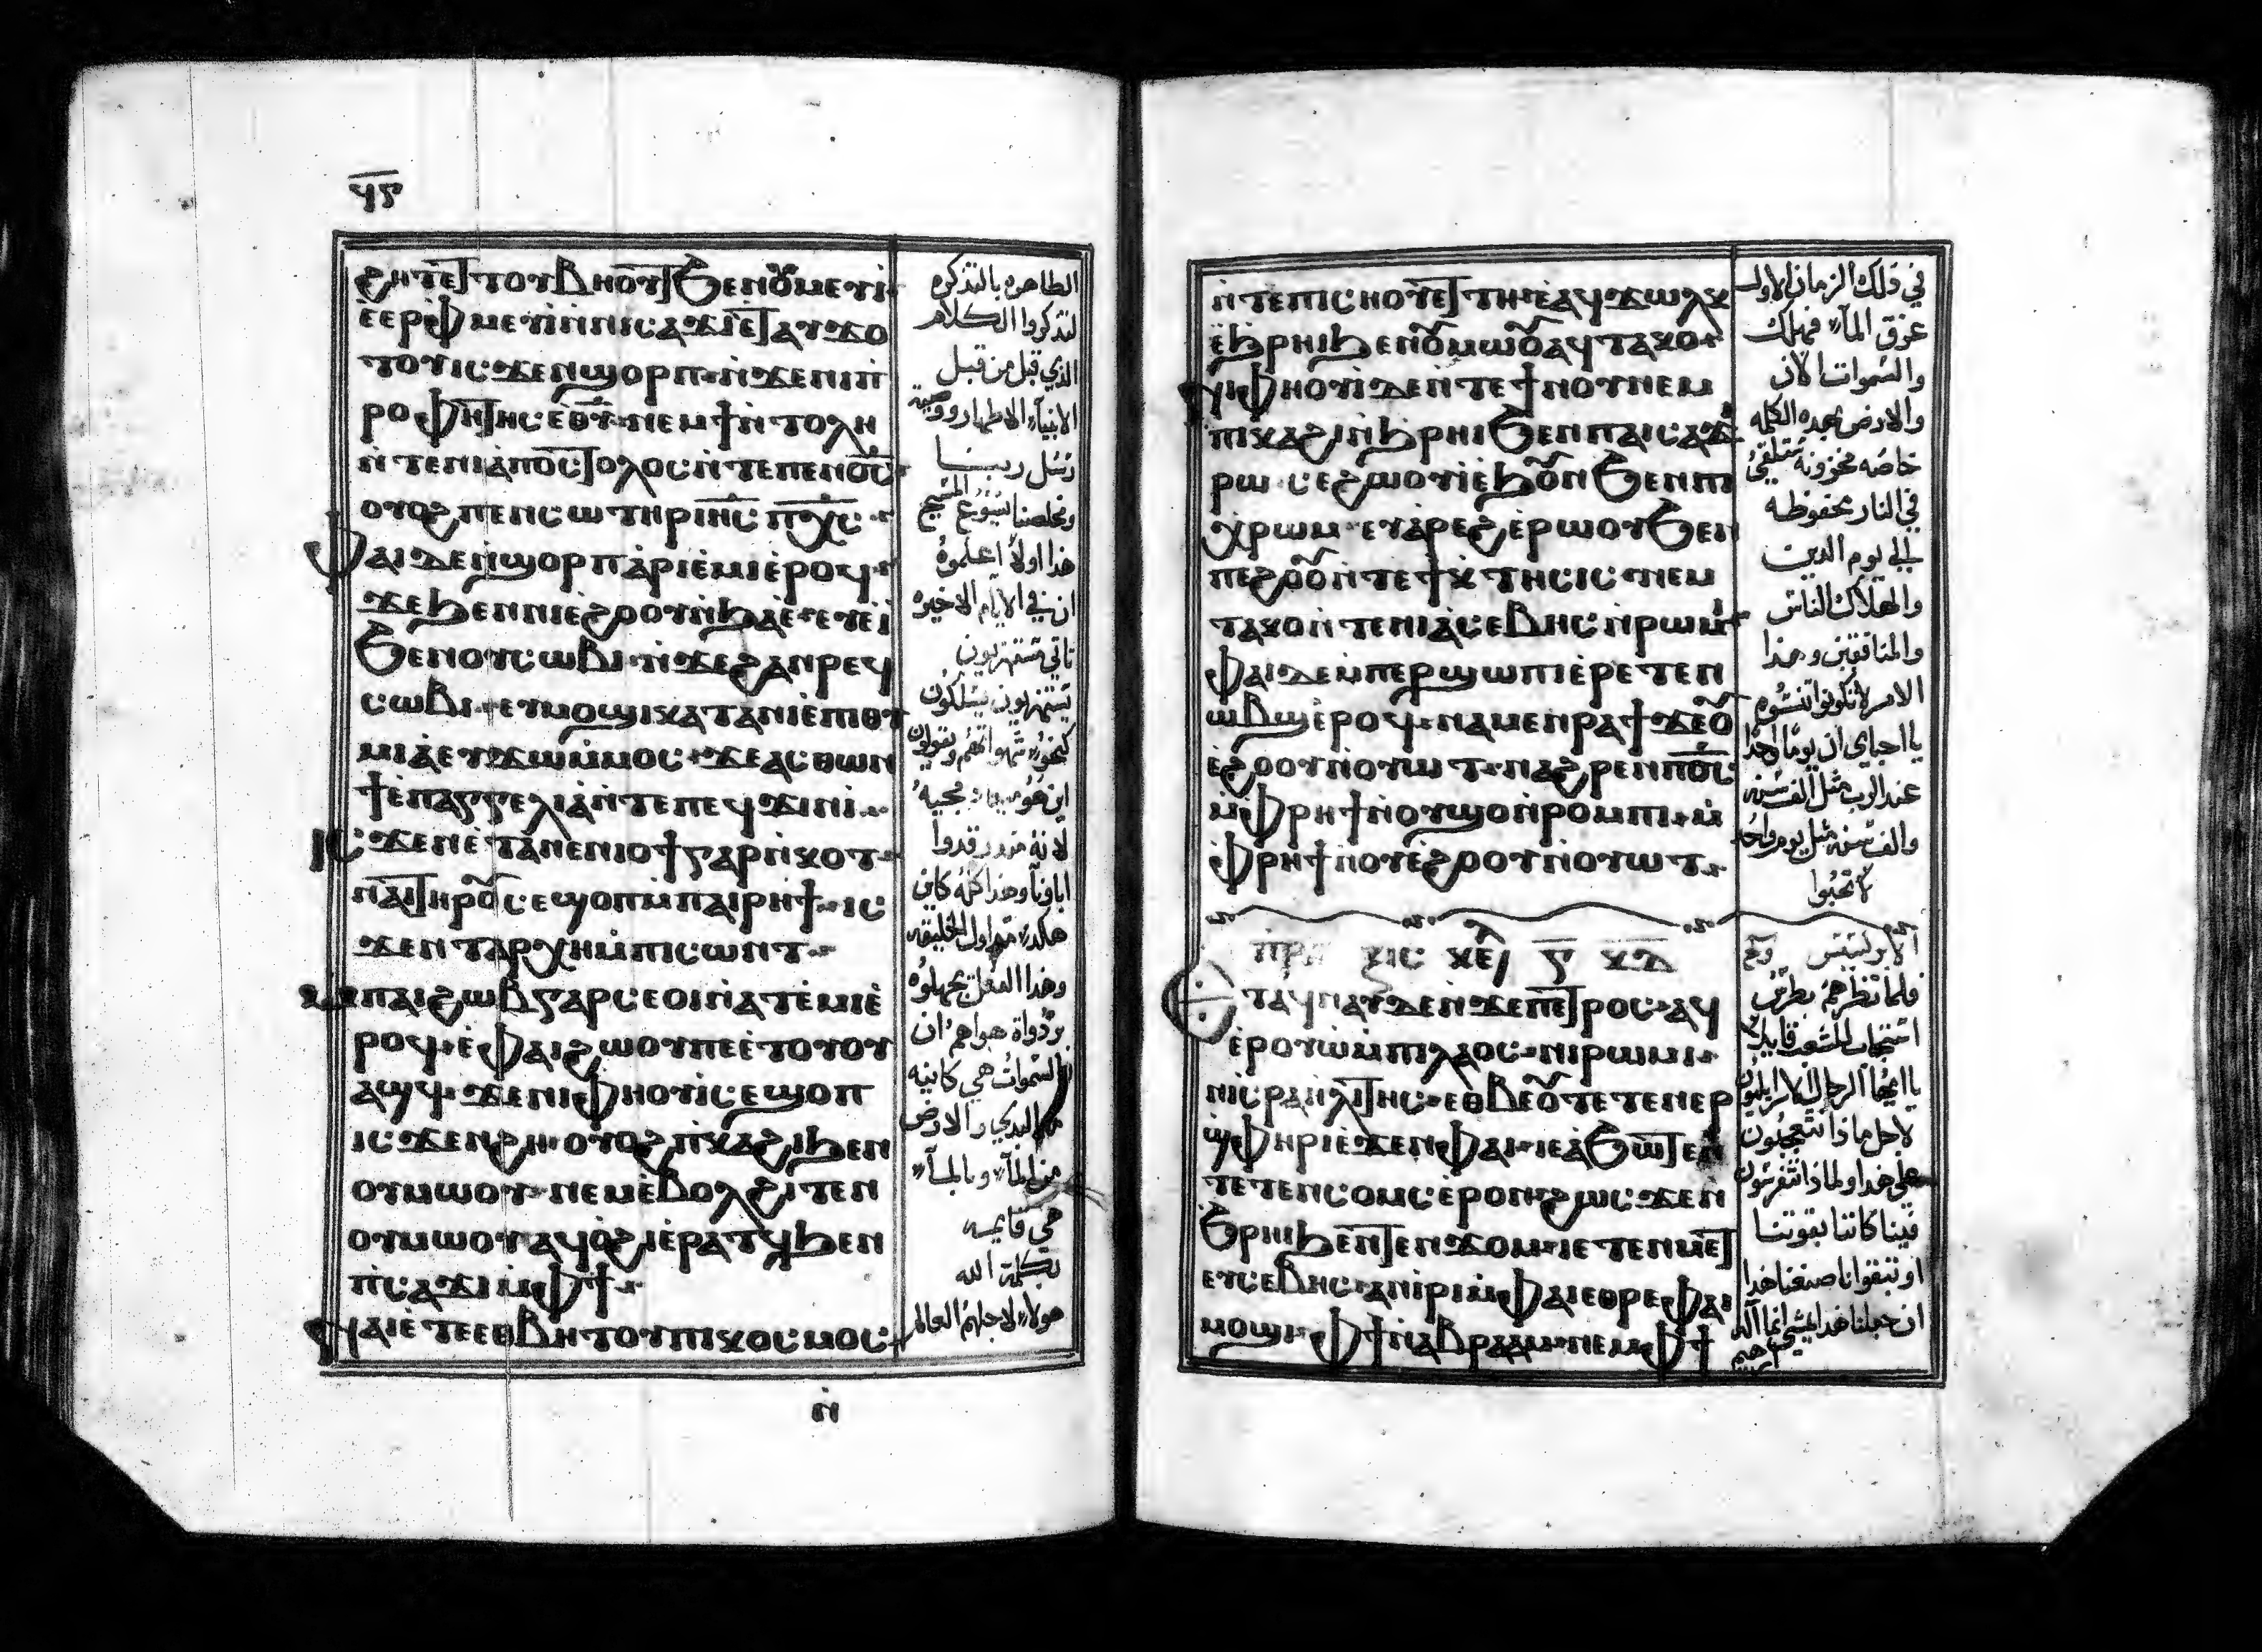 ϥⲋ
ϩⲏⲧ ⲉⲧⲧⲟⲩⲃⲏⲟⲩⲧ ϧⲉⲛⲟⲩⲙⲉⲩⲓ
ⲉⲉⲣⲫⲙⲉⲩⲓ ⲛⲛⲓⲥⲁϫⲓ ⲉⲧⲁⲩϫⲟ
ⲧⲟⲩ ⲓⲥϫⲉⲛ ϣⲟⲣⲡ ⲛϫⲉⲛⲓⲡ
ⲣⲟⲫⲏⲧⲏⲥ ⲉⲑⲩ ⲛⲉⲙ ϯⲛⲧⲟⲗⲏ
ⲛⲧⲉⲛⲓⲁⲡⲟⲥⲧⲟⲗⲟⲥ ⲛⲧⲉⲡⲉⲛⲟⲥ
ⲟⲩⲟϩ ⲡⲉⲛⲥⲱⲧⲏⲣ ⲓⲏⲥ ⲡⲭⲥ
ⲫⲁⲓ ⲇⲉ ⲛϣⲟⲣⲡ ⲁⲣⲓⲉⲙⲓ ⲉⲣⲟϥ
ϫⲉ ϧⲉⲛⲛⲓⲉϩⲟⲟⲩ ⲛϧⲁⲉ ⲉⲩⲉⲓ
ϧⲉⲛⲟⲩⲥⲱⲃⲓ ⲛϫⲉϩⲁⲛⲣⲉϥ
ⲥⲱⲃⲓ ⲉⲩⲙⲟϣⲓ ⲕⲁⲧⲁ ⲛⲓⲉⲡⲓⲑⲩ
ⲙⲓⲁ ⲉⲩϫⲱ ⲙⲙⲟⲥ ϫⲉ ⲁⲥⲑⲱⲛ
ϯⲉⲡⲁⲅⲅⲉⲗⲓⲁ ⲛⲧⲉⲡⲉϥϫⲓⲛⲓ
ⲓⲥϫⲉⲛ ⲉⲧⲁⲛⲉⲛⲓⲟϯ ⲅⲁⲣ ⲛⲕⲟⲧ
ⲛⲁⲓ ⲧⲏⲣⲟⲩ ⲥⲉϣⲟⲡ ⲙⲡⲁⲓⲣⲏϯ ⲓⲥ
ϫⲉⲛ ⲧⲁⲣⲭⲏ ⲙⲡⲓⲥⲱⲛⲧ
ⲡⲁⲓϩⲱⲃ ⲅⲁⲣ ⲥⲉⲟⲓ ⲛⲁⲧⲉⲙⲓ ⲉ
ⲣⲟϥ ⲉⲫⲁⲓ ϩⲱⲟⲩ ⲡⲉ ⲉⲧⲟⲩⲟⲩ
ⲁϣϥ ϫⲉ ⲛⲓⲫⲏⲟⲩⲓ ⲥⲉϣⲟⲡ
ⲓⲥϫⲉⲛ ϩⲏ ⲟⲩⲟϩ ⲡⲕⲁϩⲓ ϧⲉⲛ
ⲟⲩⲙⲱⲟⲩ ⲛⲉⲙ ⲉⲃⲟⲗϩⲓⲧⲉⲛ
ⲟⲩⲙⲱⲟⲩ ⲁϥⲟϩⲓ ⲉⲣⲁⲧϥ ϧⲉⲛ
ⲡⲥⲁϫⲓ ⲙⲫϯ
ⲛⲁⲓ ⲉⲧⲉ ⲉⲑⲃⲏⲧⲟⲩ ⲡⲓⲕⲟⲥⲙⲟⲥ
ⲛ
الطاهره بالتذكره
لتذكروا الكلام
الذي قيل من قبل
الانبياء الاطهار ووصية
رسل ربنا
ومخلصنا يسوع المسيح
هذا اولا اعلموه
ان في الايام الاخيره
تاتي مستهزيون
يستهزيون يسلكون
كنحو شهواتهم ويقولون
اين هو ميعاد مجيه
لانه منذ رقدوا
اباونا وهذا كله كاين
هكذا من اول الخليقه
وهذا الفعل يجهلوه
السموات هي كاينه
من البدي والارض
من الماء وبالماء
هي قايمه
بكلمة الله
هولاء لاجلهم العالم
ⲛⲧⲉⲡⲓⲥⲛⲟⲩ ⲉⲧⲧⲏ ⲉⲁϥϫⲱⲗⲕ
ⲉϧⲣⲏⲓ ϧⲉⲛⲟⲩⲙⲱⲟⲩ ⲁϥⲧⲁⲕⲟ
ⲛⲓⲫⲏⲟⲩⲓ ⲇⲉ ⲛⲧⲉϯⲛⲟⲩ ⲛⲉⲙ
ⲡⲓⲕⲁϩⲓ ⲛϧⲣⲏⲓ ϧⲉⲛⲡⲁⲓⲥⲁϫⲓ
ⲣⲱ ⲥⲉϩⲱⲟⲩⲓ ⲉϧⲟⲩⲛ ϧⲉⲛⲡⲓ
ⲭⲣⲱⲙ ⲉⲩⲁⲣⲉϩ ⲉⲣⲱⲟⲩ ϧⲉⲛ
ⲡⲉϩⲟⲟⲩ ⲛⲧⲉϯⲕⲧⲏⲥⲓⲥ ⲛⲉⲙ
ⲡⲧⲁⲕⲟ ⲛⲧⲉⲛⲓⲁⲥⲉⲃⲏⲥ ⲛⲣⲱⲙⲓ
ⲫⲁⲓ ⲇⲉ ⲙⲡⲉⲣϣⲱⲡⲓ ⲉⲣⲉⲧⲉⲛ
ⲱⲃϣ ⲉⲣⲟϥ ⲛⲁⲙⲉⲛⲣⲁϯ ϫⲉ ⲟⲩ
ⲉϩⲟⲟⲩ ⲛⲟⲩⲱⲧ ⲛⲁϩⲣⲉⲛ ⲡⲟⲥ
ⲙⲫⲣⲏϯ ⲛⲟⲩϣⲟ ⲛⲣⲟⲙⲡⲓ ⲙ
ⲫⲣⲏϯ ⲛⲟⲩⲉϩⲟⲟⲩ ⲛⲟⲩⲱⲧ
ⲡⲣⲁⲝⲓⲥ ⲕⲉⲫ ⲅ ⲕⲇ
ⲉⲧⲁϥⲛⲁⲩ ⲇⲉ ⲛϫⲉⲡⲉⲧⲣⲟⲥ ⲁϥ
ⲉⲣⲟⲩⲱ ⲙⲡⲓⲗⲁⲟⲥ ⲛⲓⲣⲱⲙⲓ
ⲛⲓⲥⲣⲁⲏⲗⲓⲧⲏⲥ ⲉⲑⲃⲉⲟⲩ ⲧⲉⲧⲉⲛⲉⲣ
ϣⲫⲏⲣⲓ ⲉϫⲉⲛ ⲫⲁⲓ ⲓⲉ ⲁϧⲱⲧⲉⲛ
ⲧⲉⲧⲉⲛⲥⲟⲙⲥ ⲉⲣⲟⲛ ϩⲱⲥ ϫⲉ ⲛ
ϧⲣⲏⲓ ϧⲉⲛⲧⲉⲛϫⲟⲙ ⲓⲉ ⲧⲉⲛⲙⲉⲧ
ⲉⲩⲥⲉⲃⲏⲥ ⲁⲛⲓⲣⲓ ⲙⲫⲁⲓ ⲉⲑⲣⲉⲫⲁⲓ
ⲙⲟϣⲓ ⲫϯ ⲛⲁⲃⲣⲁⲁⲙ ⲛⲉⲙ ⲫϯ
في ذلك الزمان الاول
غرق الماء فهلك
والسموات الان
والارض بهذه الكلمه
خاصه مخزونه ستلقي
في النار محفوظه
الي يوم الدين
والهلاك الناس
والمنافقين وهذا
الامر لا تكونوا تنسوه
يا احباي ان يوما واحدا
عند الرب مثل الف سنه
والف سنه مثل يوم واحد
لا تحبوا
الابركسيس
فلما نظرهم بطرس
استجاب للشعب قايلا
لاجل ماذا تتعجبون
علي هذا ولماذا تتفرسون
فينا كاننا بقوتنا
او تبقوانا صنعنا هذا
ان جعلنا هذا يمشي انما اله
ابرهيم